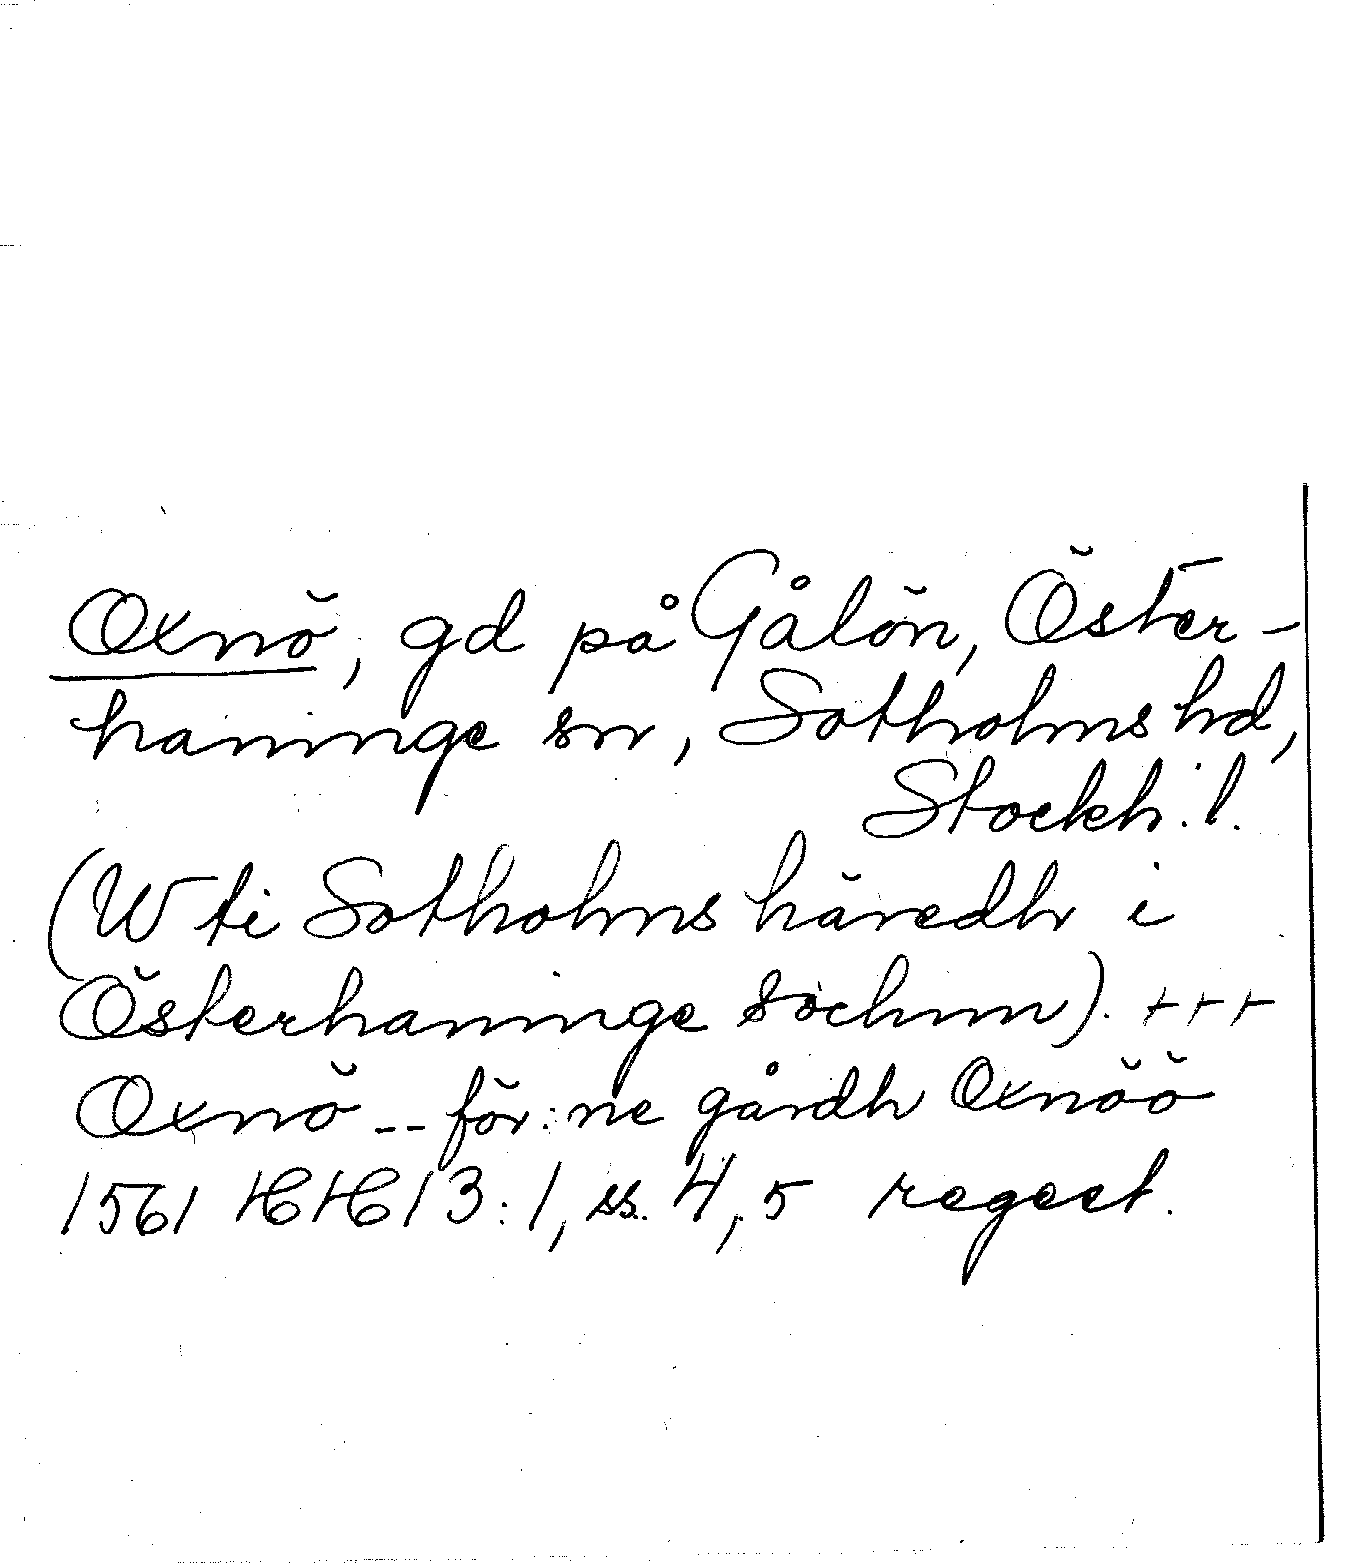 Oxnö, gd på Gålön, Öster-
haninge sn, Sotholms hd,
Stockh. l.
(W ti Sotholms häredh i
Österhaninge sochnn). +++
Oxnö -- för:ne gårdh Oxnöö
1561 HH 13:1, ss. 4, 5 regest.